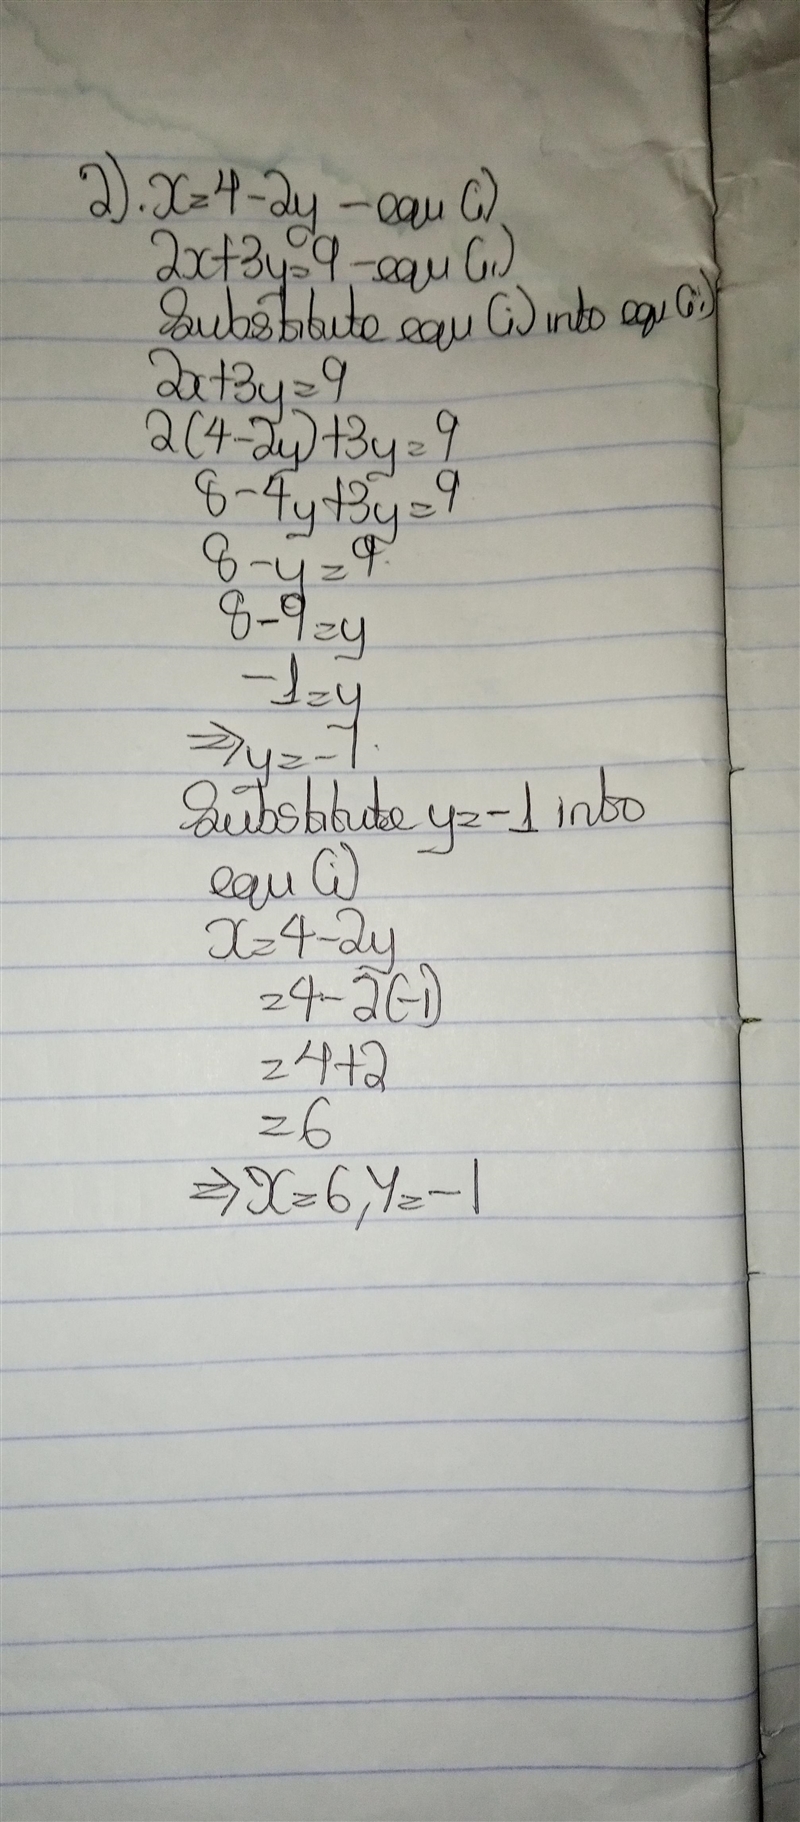 2). x=4-2y - equ (i)
2x+3y=9 - equ (ii)
Substitute equ (i) into equ (ii)
2x+3y=9
2(4-2y)+3y=9
8-4y+3y=9
8-y=9.
8-9=y
-1=y
⇒y=-1.
Substitute y=-1 into
equ (i)
x=4-2y
=4-2(-1)
=4+2
=6
⇒x=6, y=-1